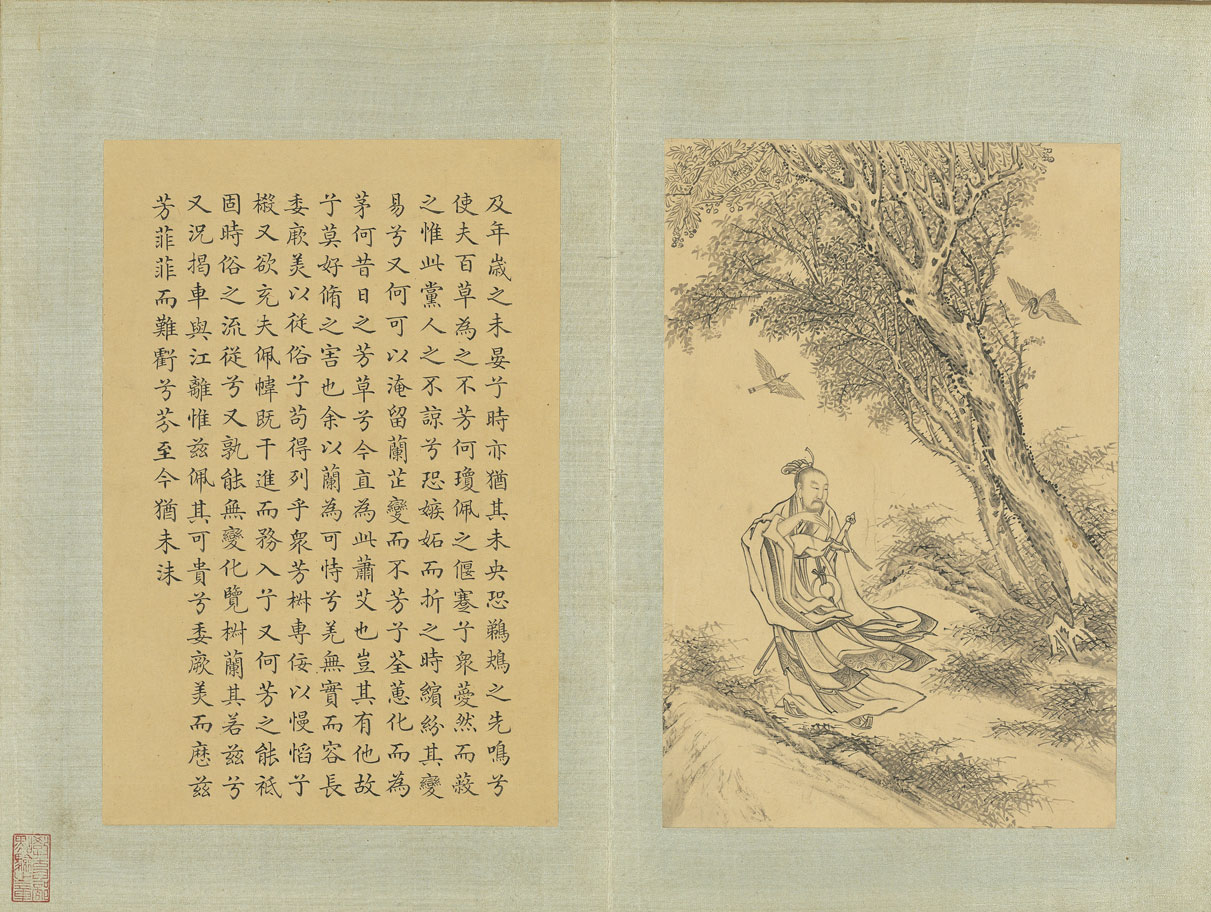 及年歲之未晏兮時亦猶其未央恐鵜鴂之先鳴兮
使夫百草為之不芳何瓊佩之偃蹇兮衆薆然而蔽
之惟此黨人之不諒兮恐嫉妬而折之時繽紛其變
易兮又何可以淹留蘭芷變而不芳兮荃蕙化而為
茅何昔日之芳草兮今直為此蕭艾也豈其有他故
兮莫好脩之害也余以蘭為可恃兮羌無實而容長
委厥美以從俗兮苟得列乎衆芳椒專佞以慢慆兮
樧又欲充夫佩幃既干進而務入兮又何芳之能祗
固時俗之流從兮又孰能無變化覽椒蘭其若茲兮
又況揭車與江離惟茲佩其可貴兮委厥美而歷茲
芳菲菲而難虧兮芬至今猶未沬